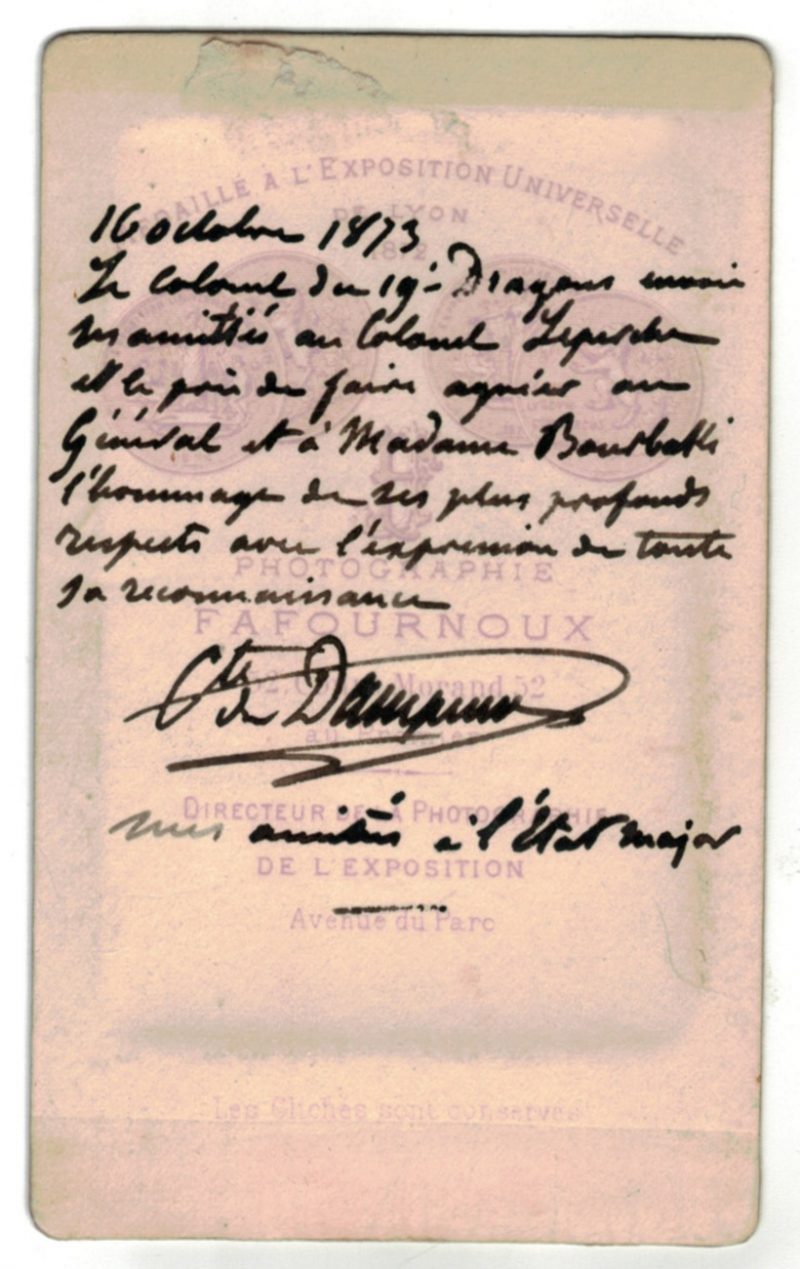 MEDAILLE A L'EXPOSITION UNIVERSELLE
DE LYON
1872
16 octobre 1873
Le Colonel du 19e Dragons envoie
ses amitiés au Colonel Leperche
et le prie de faire agréer au
Général et à Madame Bourbaki
l'hommage de ses plus profonds
respects avec l'expression de toute
sa reconnaissance
PHOTOGRAPHIE
FAFOURNOUX
52, Cours Morand 52
Cte de Dampierre
au
DIRECTEUR DE LA PHOTOGRAPHIE
mes amitiés à l'État major
DE L'EXPOSITION
Avenue du Parc
Les Clichés sont conservés